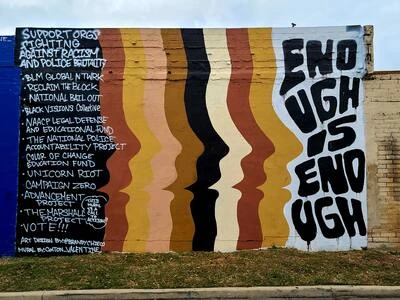 SUPPORT ORGS
FIGHTING
AGAINST RACISM
AND POLICE BRUTALITY
- BLM GLOBAL NTWRK
- RECLAIM THE BLOCK
- NATIONAL BAIL OUT
- BLACK VISIONS COLLECTIVE
- NAACP LEGAL DEFENSE
AND EDUCATIONAL FUND
- THE NATIONAL POLICE
ACCOUNTABILITY PROJECT
- COLOR OF CHANGE
EDUCATION FUND
- UNICORN RIOT
- CAMPAIGN ZERO
- ADVANCEMENT
PROJECT
- THE MARSHALL
PROJECT
- VOTE!!!
ART DESIGN BY:
MURAL BY:
ENO
UGH
IS
ENO
UGH